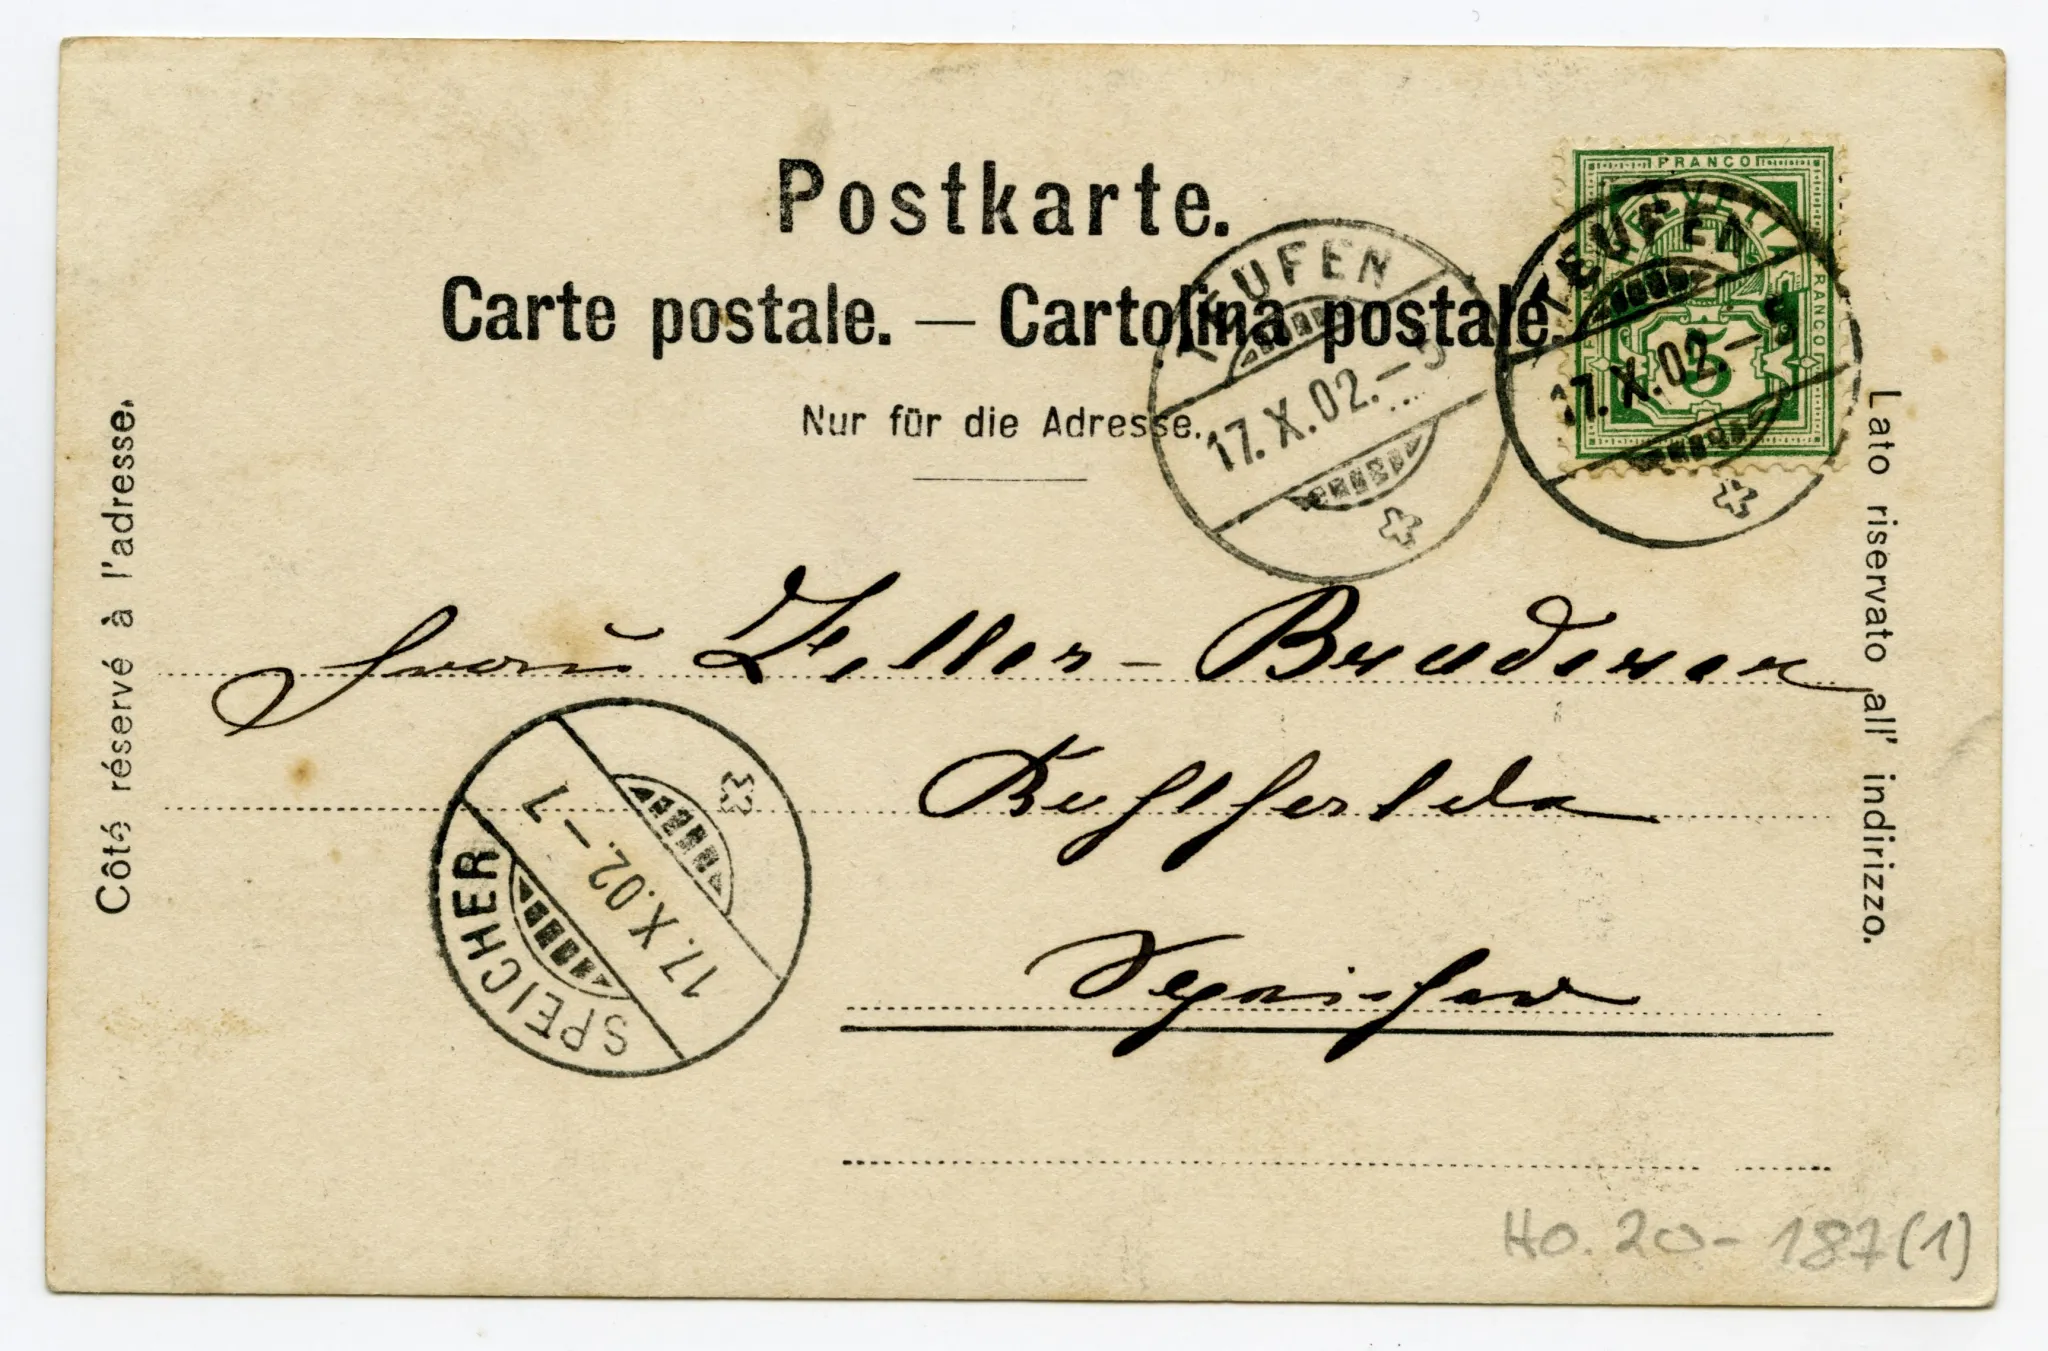 Postkarte.
Carte postale. — Cartolina postale.
Nur für die Adresse.
Côté réservé à l'adresse.
Lato riservato all' indirizzo.
FRANCO
HELVETIA
FRANCO
5
TEUFEN
17.X.02.-5
TEUFEN
17.X.02.-5
Frau Zeller-Bruderer
SPEICHER
17.X.02.-7
Speicher
Ho. 20-187(1)